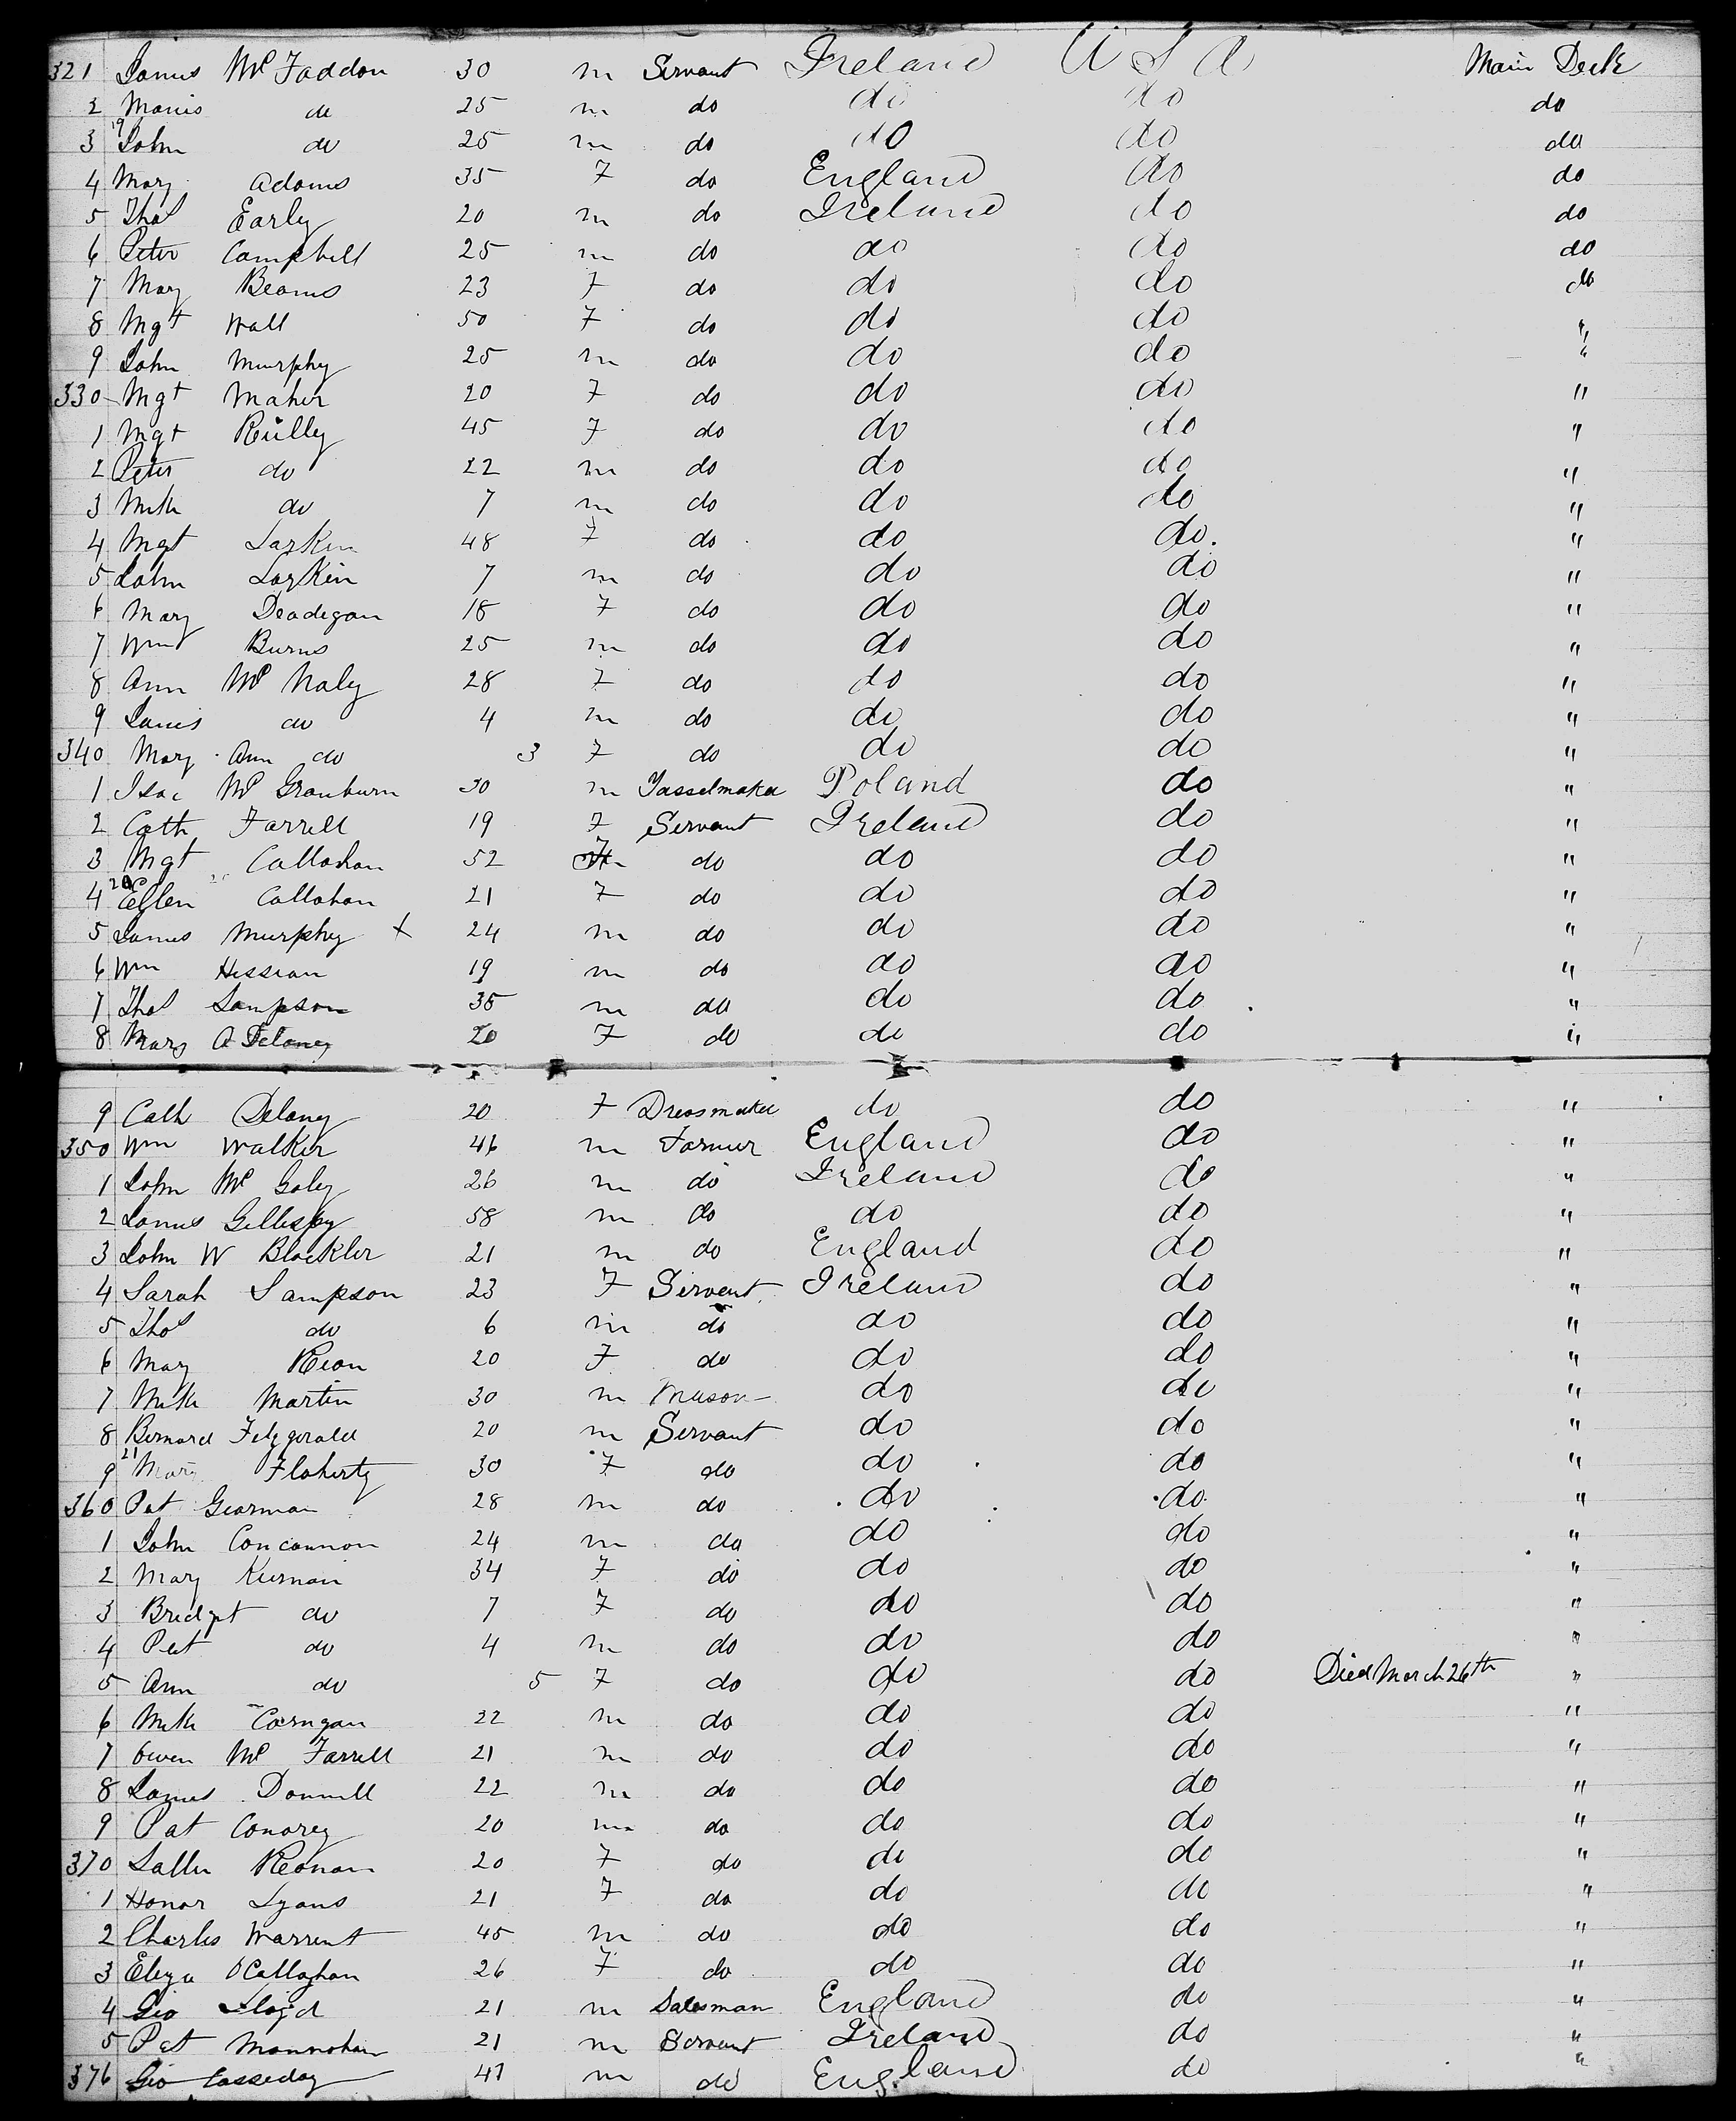 321 James McFaddon 30 m Servant Ireland U S A Main Deck
2 Manis do 25 m do do do do
19
3 John do 25 m do do do do
4 Mary Adams 35 F do England do do
5 Thos Early 20 m do Ireland do do
6 Peter Campbell 25 m do do do do
7 Mary Beams 23 F do do do do
8 Mgt Wall 50 F do do do "
9 John Murphy 25 m do do do "
330 Mgt Maher 20 F do do do "
1 Mgt Reilly 45 F do do do "
2 Peter do 22 m do do do "
3 Mik do 7 m do do do "
4 Mgt Larkin 48 F do do do. "
5 John Larkin 7 m do do do "
6 Mary Deadegan 18 F do do do "
7 Wm Burns 25 m do do do "
8 Ann Mc Naly 28 F do do do "
9 James do 4 m do do do "
340 Mary Ann do 3 F do do do "
1 Isac Mc Granburn 30 m Tasselmaker Poland do "
2 Cath Farrell 19 F Servant Ireland do "
3 Mgt Callahan 52 F do do do "
20
4 Ellen Callahan 21 F do do do "
5 James Murphy X 24 m do do do "
6 Wm Hession 19 m do do do "
7 Thos Sampson 35 m do do do "
8 Mary A Delaney 20 F do do do "
9 Cath Delany 20 F Dressmaker do do "
350 Wm Walker 46 m Farmer England do "
1 John Mc Goley 26 m do Ireland do "
2 James Gillespy 58 m do do do "
3 John W Blackler 21 m do England do "
4 Sarah Sampson 23 F Servant Ireland do "
5 Thos do 6 m do do do "
6 Mary Rion 20 F do do do "
7 Mik Martin 30 m Mason do do "
8 Bernard Fitzgerald 20 m Servant do do "
21
9 Mary Flaherty 30 F do do do "
360 Pat Gearman 28 m do do do "
1 John Concannon 24 m do do do "
2 Mary Kiernan 34 F do do do "
3 Bridget do 7 F do do do "
4 Pat do 4 m do do do "
5 Ann do 5 F do do do Died March 26th "
6 Mik Corrigan 22 m do do do "
7 Owen Mc Farrell 21 m do do do "
8 James Donnell 22 m do do do "
9 Pat Conorey 20 m do do do "
370 Sallie Reonan 20 F do do do "
1 Honor Lyons 21 F do do do "
2 Charles Warrent 45 m do do do "
3 Eliza OCallaghan 26 F do do do "
4 Geo Lloyd 21 m Salesman England do "
5 Pat Monnohan 21 m Servant Ireland do "
376 Geo Casseday 47 m do England do "